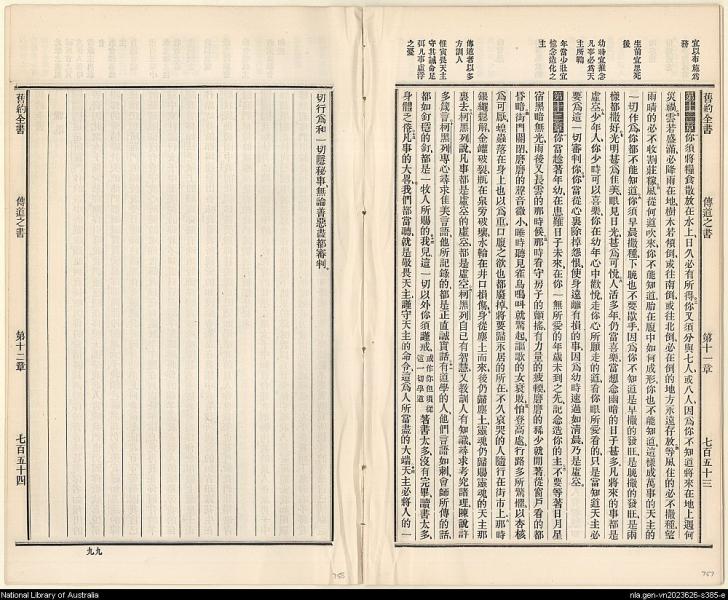 宜以布施爲務
生前宜思死後
幼時宜懷念凡事必爲天主所鞫
年當少壯宜憶念造化之主
傳道者以多方訓人
惟寅畏天主守其誡命足弭凡事虛浮之憂
舊約全書
傳道之書
第十一章
七百五十三
第十一章你須將糧食散放在水上日久必有所得你又須分與七人或八人因爲你不知道將來在地上遇何
災禍雲若盛滿必降雨在地樹木若傾倒或往南倒或往北倒必在倒的地方永遠存放等風住的必不撒種望
雨晴的必不收割莊稼風從何道吹來你不能知道胎在腹中如何成形你也不能知道這樣成萬事的天主的
一切作爲你都不能知道你須早晨撒種下晚也不要歇手因爲你不知道是早撒的發旺是晚撒的發旺是兩
樣都撒好光明甚爲佳美眼見日光甚爲可悅人活多年仍當喜樂當想念幽暗的日子甚多凡將來的事都是
虛空少年人你少時可以喜樂你在幼年心中歡悅走你心所願走的道看你眼所愛看的只是當知道天主必
要爲這一切審判你你當從心裏除掉愁惱使身遠離有損的事因爲幼時速過如清晨乃是虛空
第十二章你當趁著年幼在患難日子未來在你一無所愛的年歲未到之先記念造你的主不要等著日月星
宿黑暗無光雨後又長雲的那時候那時看守房子的顫搖有力量的疲輭磨磨的稀少就閒著從窗戶看的都
昏暗街門關閉磨磨的聲音微小睡時聽見雀鳥鳴叫就驚起謳歌的女衰敗怕登高處行路多所驚懼以杏核
爲可厭蝗蟲落在身上也以爲重口腹之欲也都廢掉將要歸永居的所在不久哀哭的人隨行在街市上那時
銀繩鬆解金罐破裂瓶在泉旁破壞水輪在井口損傷身從塵土而來後仍歸塵土靈魂仍歸賜靈魂的天主那
裏去柯黑列說凡事都是虛空的虛空都是虛空柯黑列自己有智慧又教訓人有知識尋求考究諸理陳說許
多箴言柯黑列專心尋求佳美言語他所記錄的都是正直誠實話有道學的人他們言語如刺會師所傳的話
都如釘穩的釘都是一牧人所賜的我兒這一切以外你須謹戒或作你但須從這一切學道著書太多沒有完畢讀書太多
身體之倦凡事的大畧我們都當聽就是敬畏天主謹守天主的命令這爲人所當盡的大端天主必將人的一
757
切行爲和一切隱秘事無論善惡盡都審判
舊約全書
傳道之書
第十二章
七百五十四
九九
758
National Library of Australia
nla.gen-vn2023626-s385-e